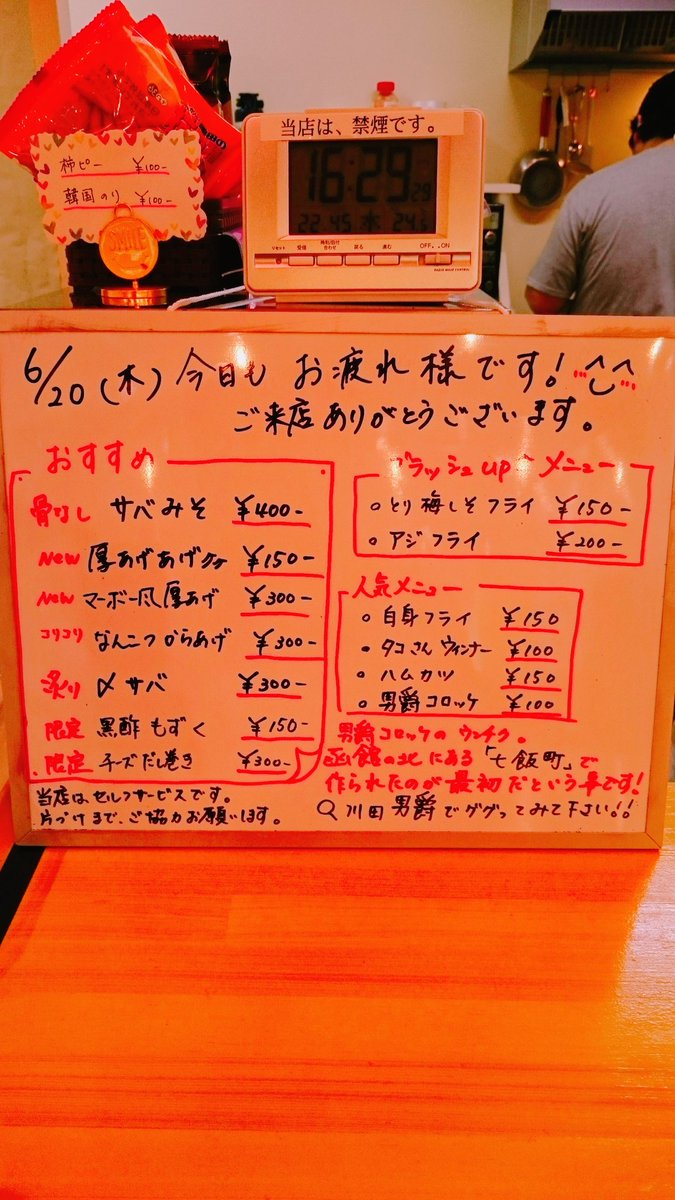 当店は、禁煙です。
柿ピー ¥100-
韓国のり ¥100-
SMILE
16:29 29
22.45 木 24.
リセット 受信 戻る 進む OFF ON
6/20(木) 今日も お疲れ様です!
ご来店ありがとうございます。
おすすめ
骨なし サバみそ ¥400-
New 厚あげあげ ¥150-
New マーボー風厚あげ ¥300-
コリコリ なんこつからあげ ¥300-
炙り 〆サバ ¥300-
限定 黒酢もずく ¥150-
限定 チーズだし巻き ¥300-
当店はセルフサービスです。
片づけまで、ご協力お願いします。
ブラッシュup メニュー
○とり梅しそフライ ¥150-
○アジフライ ¥200-
人気メニュー
○自身フライ ¥150
○タコさんウィンナー ¥100
○ハムカツ ¥150
○男爵コロッケ ¥100
男爵コロッケのウンチク。
函館の北にある「七飯町」で
作られたのが最初だという事です!
川田男爵でググってみて下さい!!